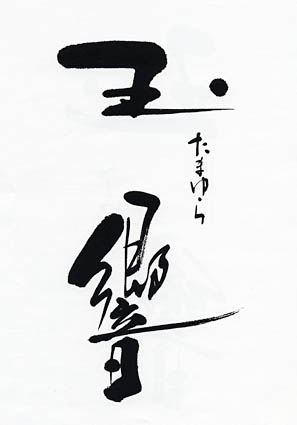 玉
たまゆら
響